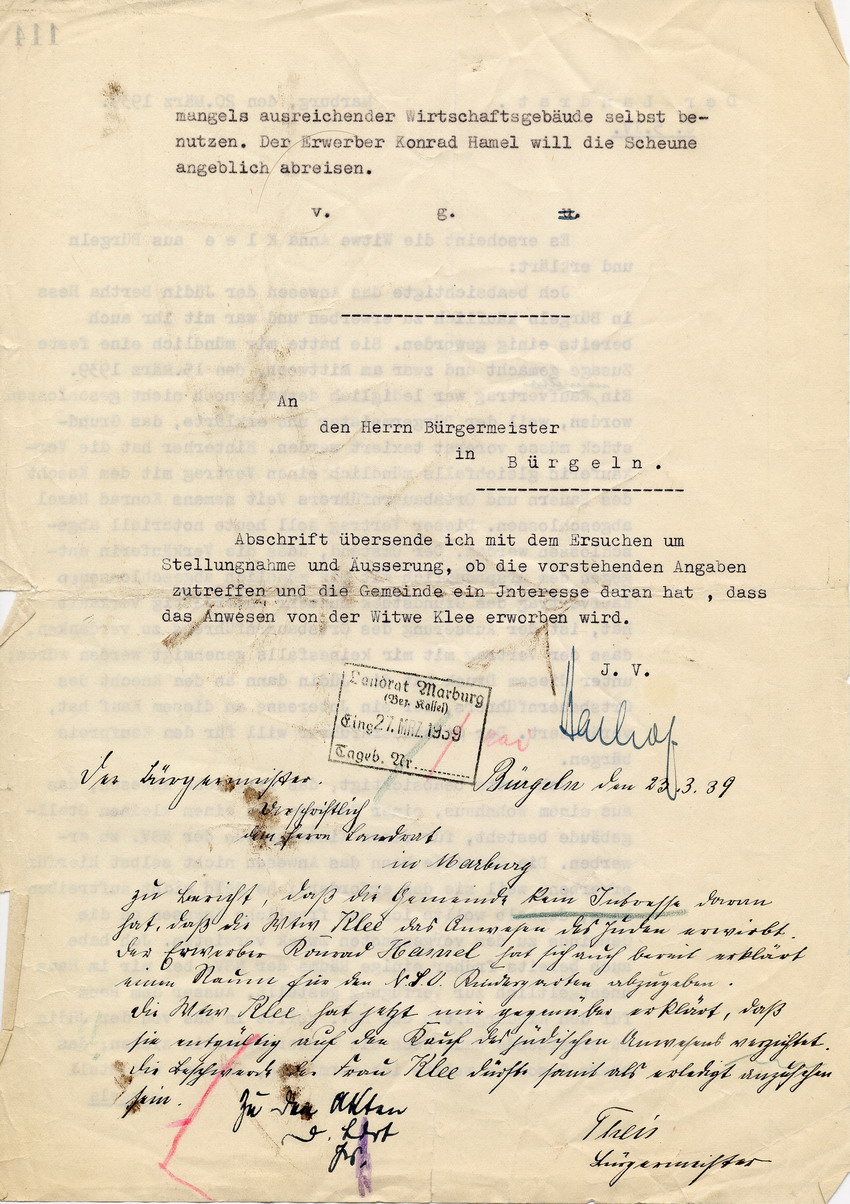 mangels ausreichender Wirtschaftsgebäude selbst be-
nutzen. Der Erwerber Konrad Hamel will die Scheune
angeblich abreisen.
v. g. u.
An
den Herrn Bürgermeister
in
Bürgeln.
Abschrift übersende ich mit dem Ersuchen um
Stellungnahme und Äusserung, ob die vorstehenden Angaben
zutreffen und die Gemeinde ein Jnteresse daran hat , dass
das Anwesen von der Witwe Klee erworben wird.
J. V.
Landrat Marburg
(Bez. Kassel)
Eing. 27. MRZ. 1939
Tageb. Nr.
Der Bürgermeister. Bürgeln den 23.3.39
Urschriftlich
dem Herrn Landrat
in Marburg
zu Bericht, daß die Gemeinde kein Intresse daran
hat, daß die Wtw Klee das Anwesen des Juden erwirbt.
Der Erwerber Konrad Hamel hat sich auch bereit erklärt
einen Raum für den N.S.V. Kindergarten abzugeben.
Die Wtw Klee hat jetzt mir gegenüber erklärt, daß
sie entgültig auf den Kauf des jüdischen Anwesens verzichtet.
Die Beschwerde der Frau Klee dürfte somit als erledigt anzusehen
sein.
Zu den Akten
Theis
Bürgermeister